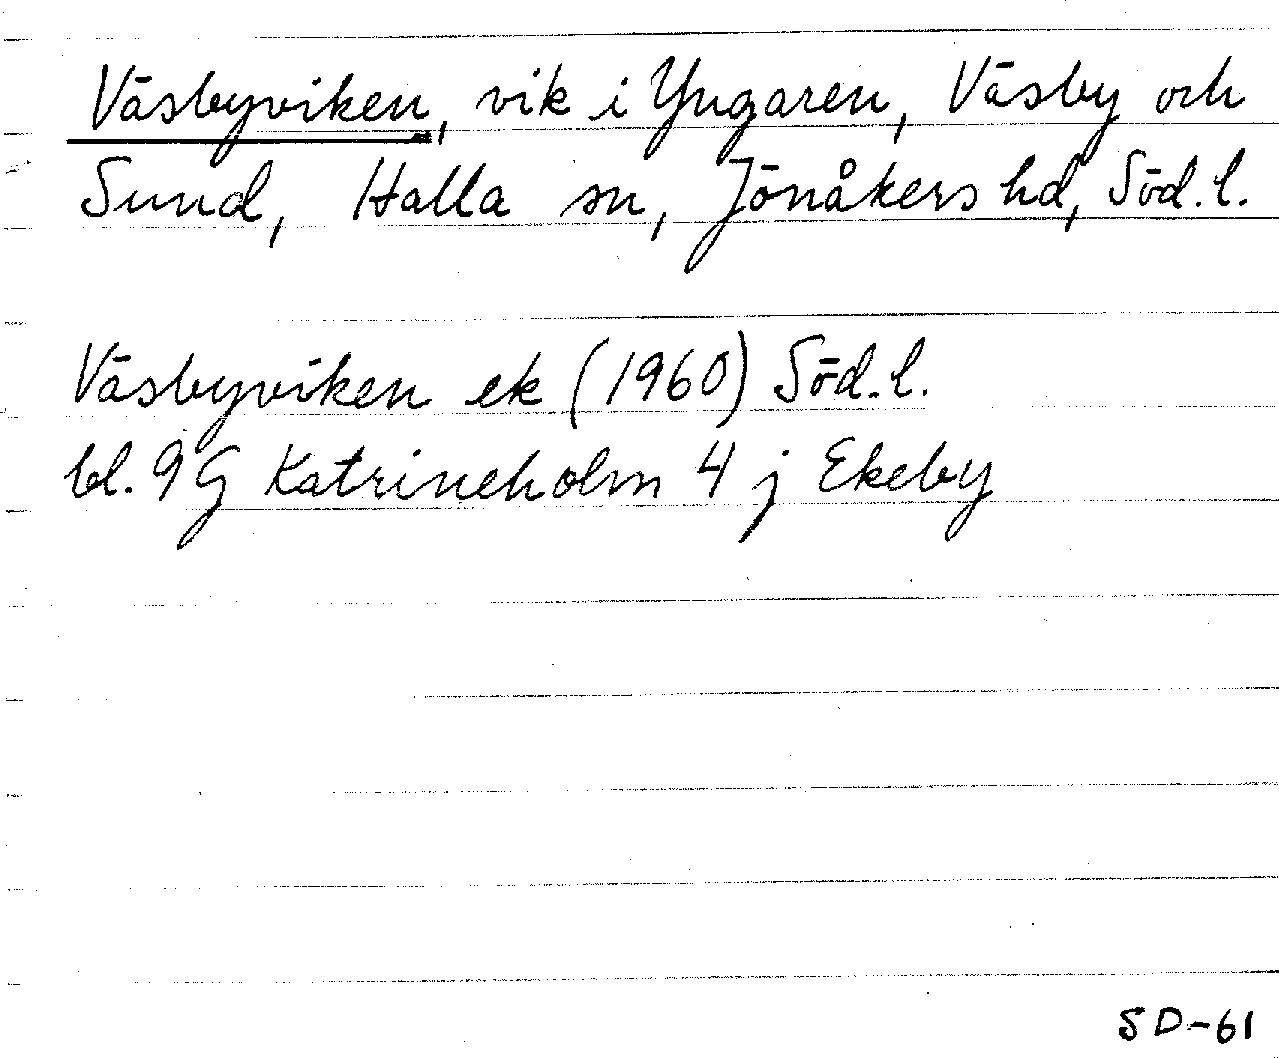 Väsbyviken, vik i Yngaren, Väsby och
Sund, Halla sn, Jönåkers hd, Söd. l.
Väsbyviken ek (1960) Söd. l.
bl. 9 G Katrineholm 4 j Ekeby
SD-61